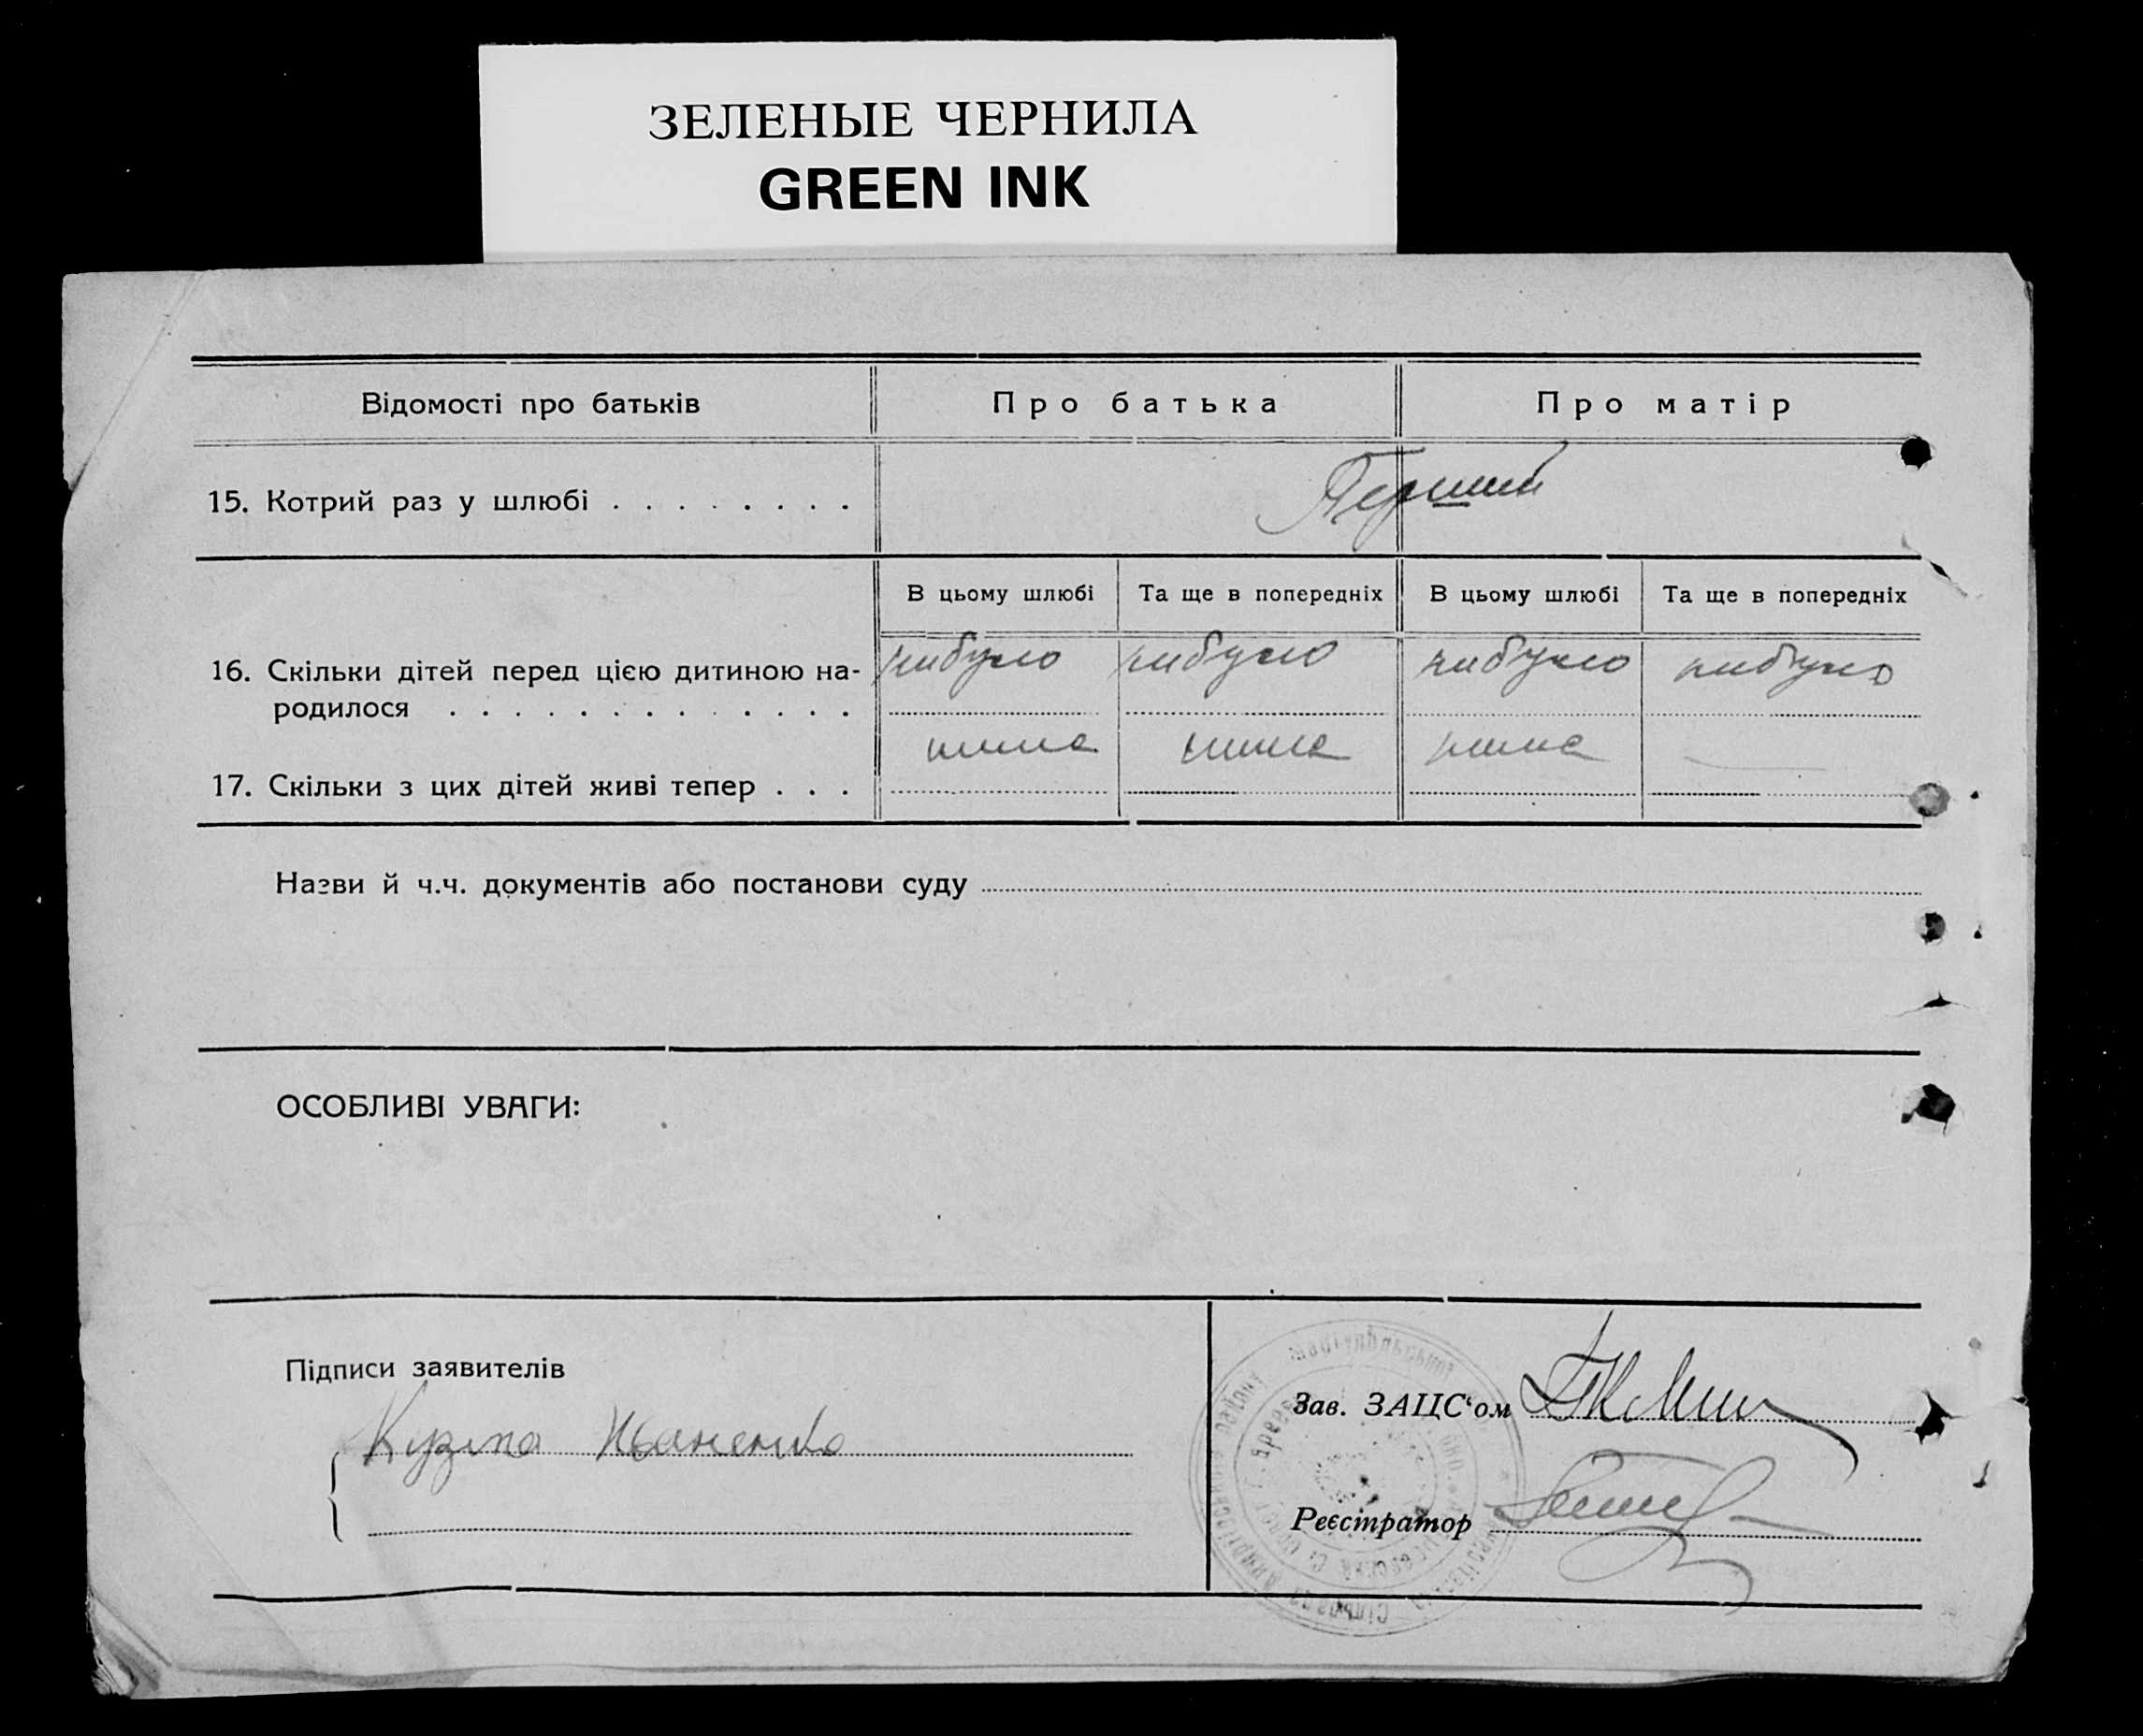 ЗЕЛЕНЫЕ ЧЕРНИЛА
GREEN INK
Відомості про батьків Про батька Про матір
15. Котрий раз у шлюбі . . . . . . . . Перший
В цьому шлюбі Та ще в попередніх В цьому шлюбі Та ще в попередніх
16. Скільки дітей перед цією дитиною на- нибуло нибуло нибуло нибуло
родилося . . . . . . . . . . . . . .
17. Скільки з цих дітей живі тепер . . . нима нима нима —
Назви й ч.ч. документів або постанови суду
ОСОБЛИВІ УВАГИ:
Підписи заявителів
Кузма Иваненко
Зав. ЗАЦС‘ом
Реєстратор